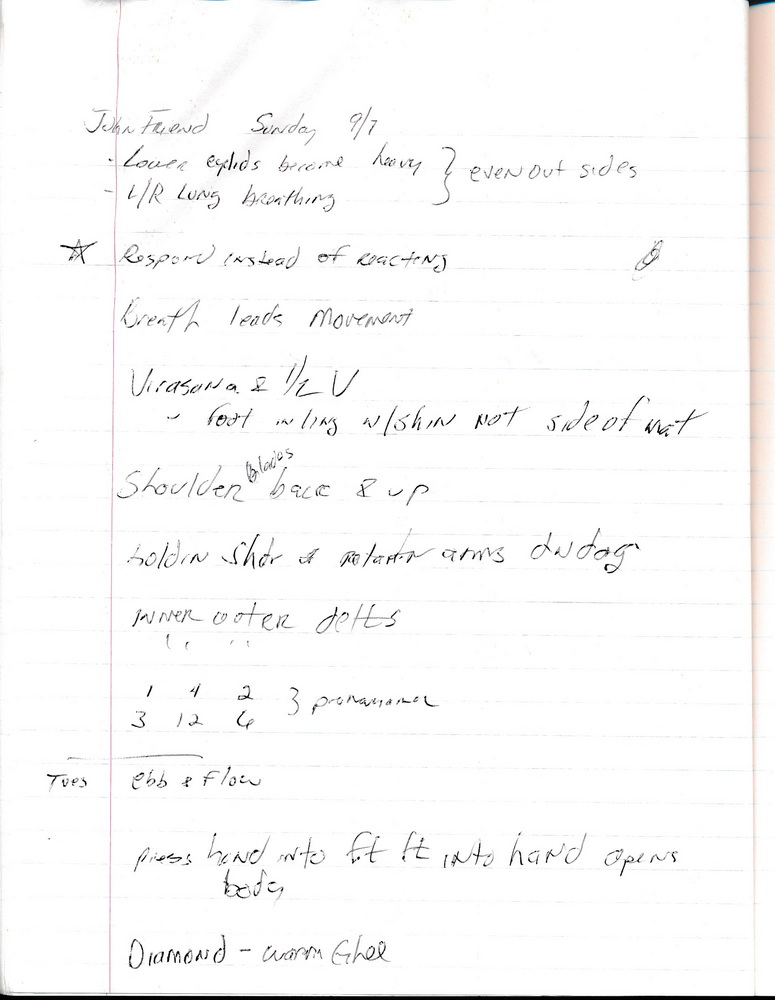 John Friend Sunday 9/7
- Lower eyelids become heavy } even out sides
- L/R Lung breathing
☆ Respond instead of reacting
Breath leads movement
Virasana & 1/2 V
- foot in line w/shin not side of mat
Shoulder blades back & up
shdr & arms dndog
inner outer delts
" "
1 4 2 } pranayama
3 12 6
Tues ebb & flow
press hand into ft ft into hand opens
body
Diamond - warm Ghee